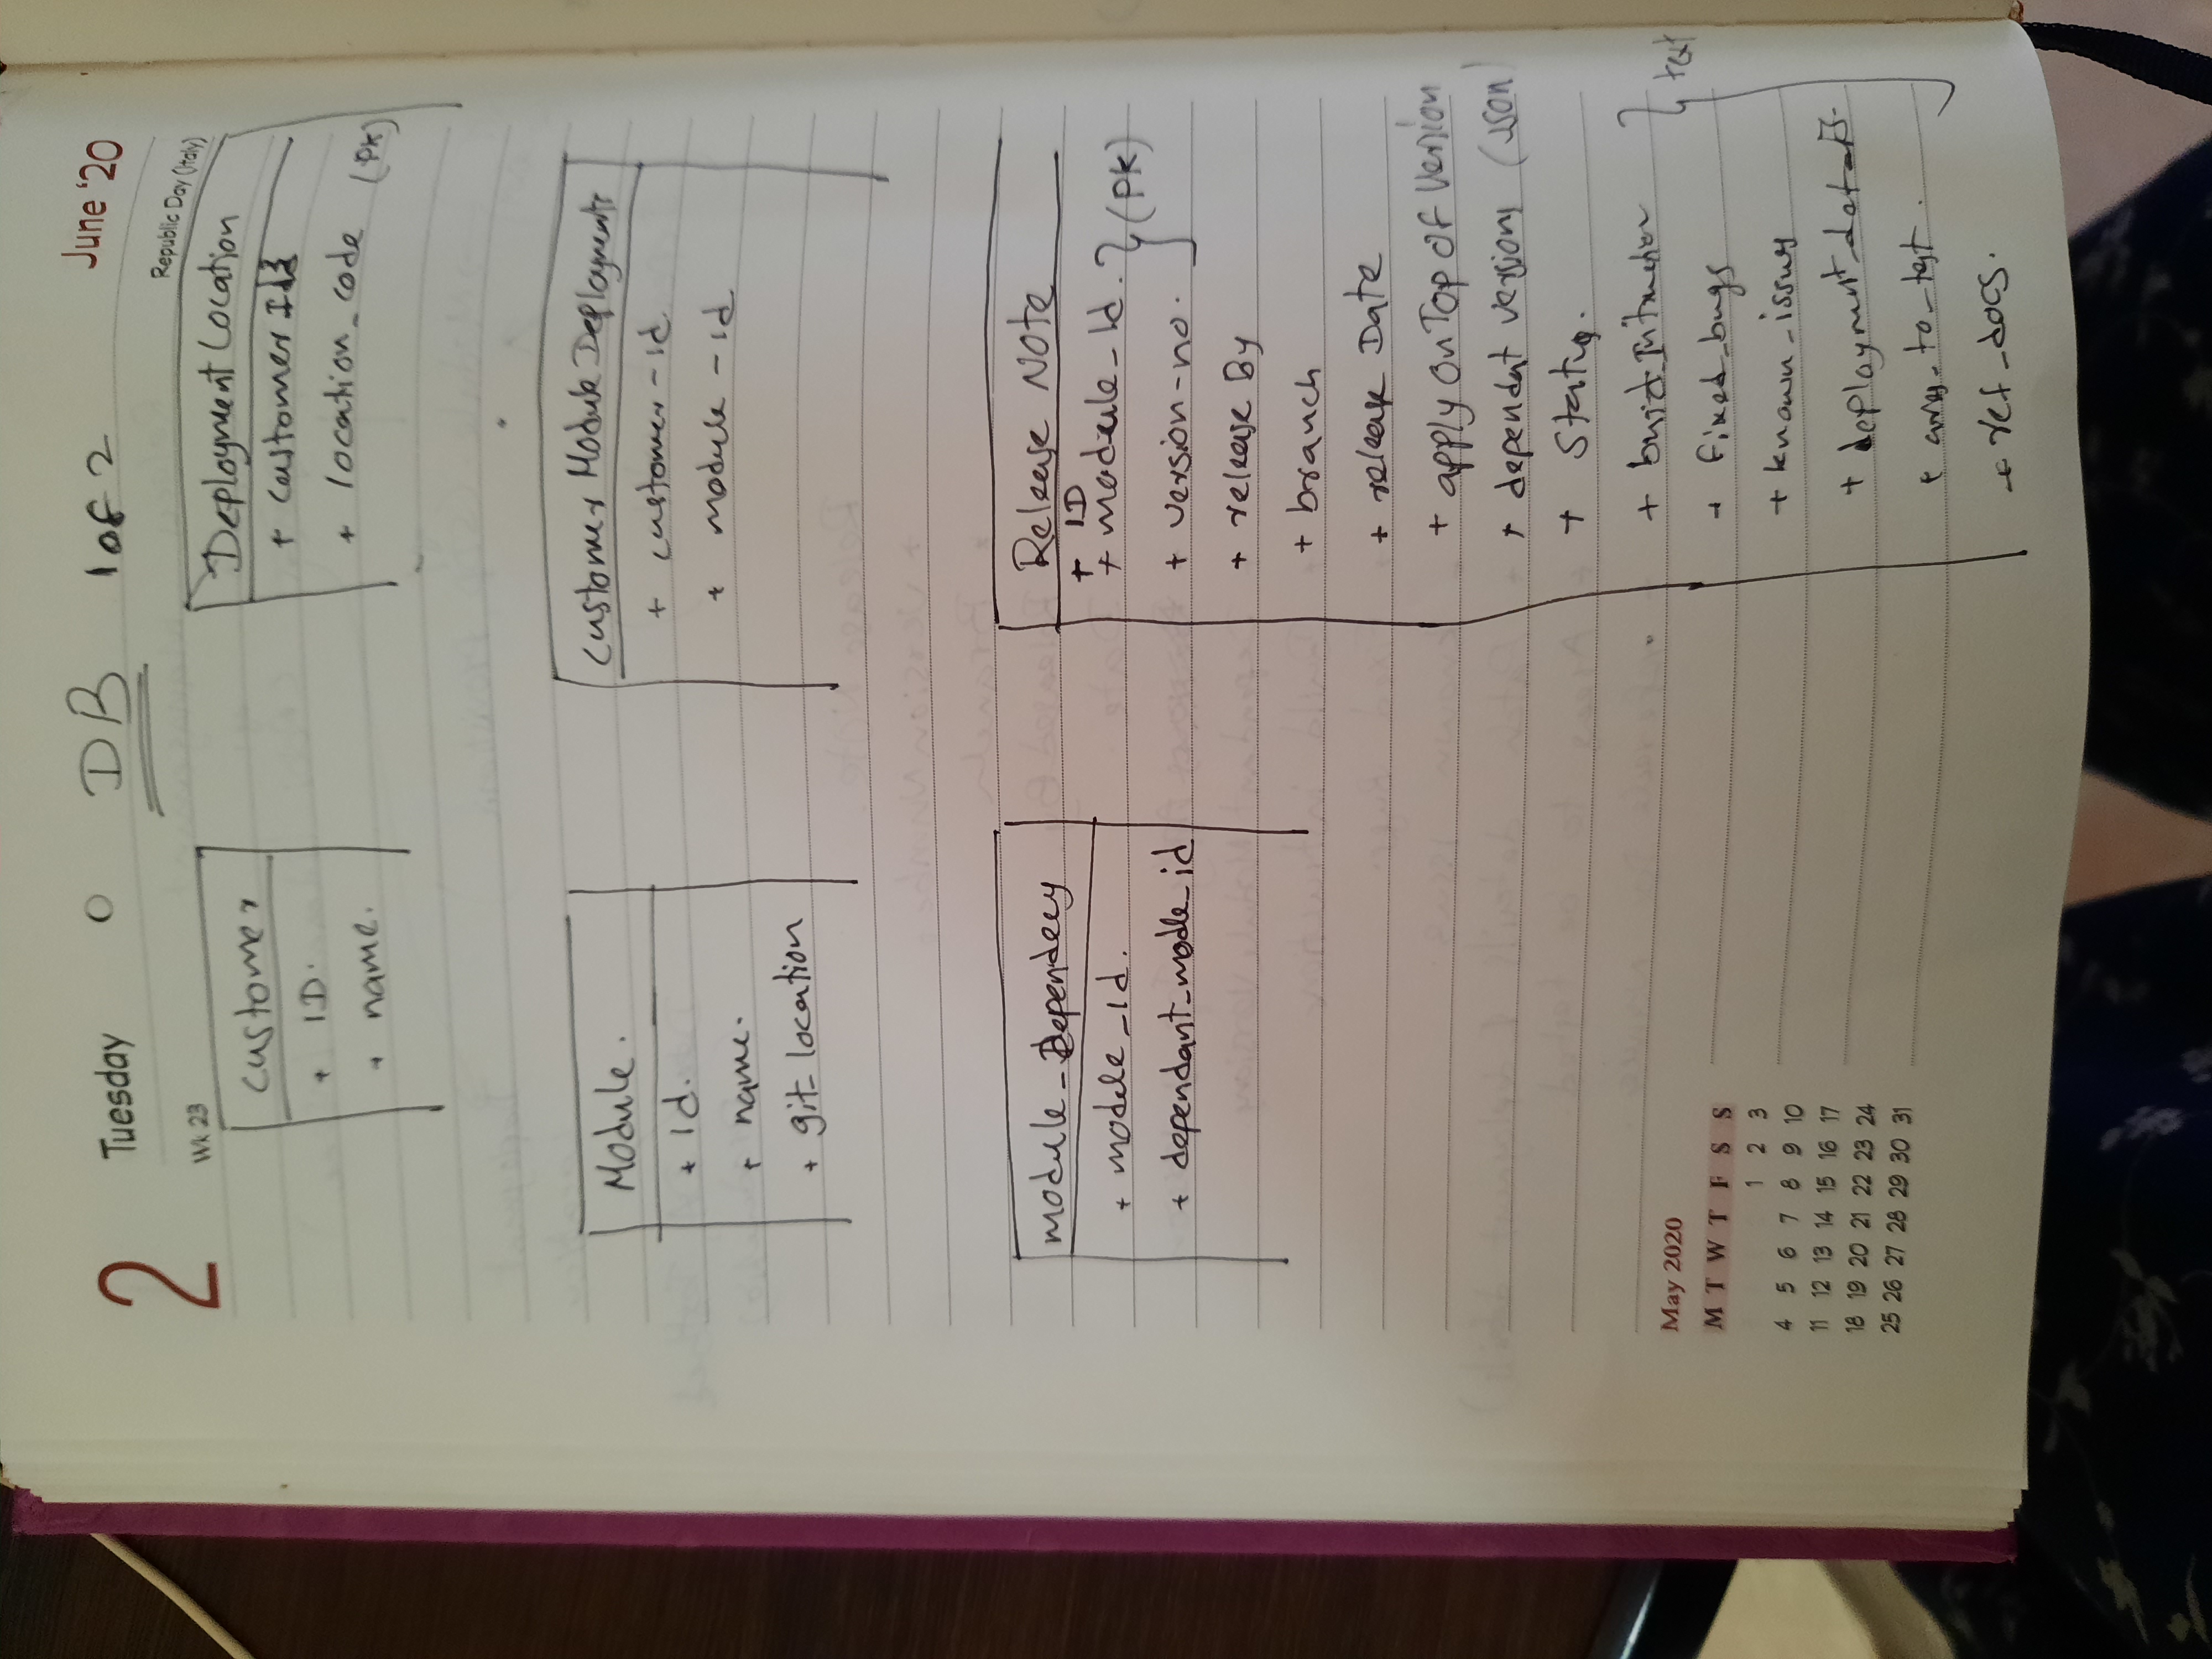 2 Tuesday O DB 1 of 2 June '20
Republic Day (Italy)
Wk 23
Customer
+ ID.
+ name.
Deployment Location
+ customer Id
+ location_code (PK)
Module.
+ Id.
+ name.
+ git_location
Customer Module Deployments
+ customer-id
+ module-id
module_Dependecy
+ modele_Id.
+ dependant_modle_id
Release Note
+ ID
+ module_Id. } (PK)
+ version-no.
+ release By
+ branch
+ release Date
+ apply On Top Of Version
+ dependat versions (JSON)
+ Status.
+ build_Intruction
+ fixed_bugs
+ known_issues
text
+ deployment_details
+ areas_to_test.
+ ref_docs.
May 2020
M T W T F S S
1 2 3
4 5 6 7 8 9 10
11 12 13 14 15 16 17
18 19 20 21 22 23 24
25 26 27 28 29 30 31